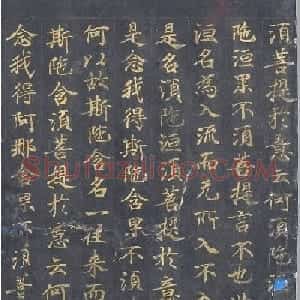 須菩提於意云何須陁洹
陁洹果不須菩提言不也
洹名為入流而无所入不入
是名須陁洹須菩提於意
是念我得斯陁含果不須
何以故斯陁含名一往來而
斯陁含須菩提於意云何
念我得阿那含果不須菩
Shufaziliao.com